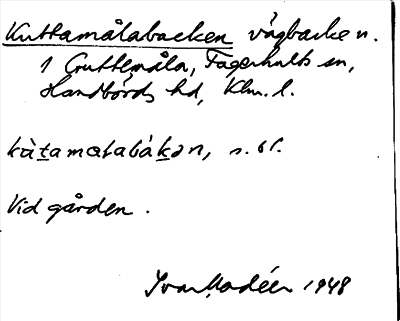 Kuttamålabacken vägbacken.
1 Gruttemåla, Fagerhults sn,
Handbörds hd, Klm. l.
kàtamatabákan, s. bf.
Vid gården.
Ivar Modéer 1948